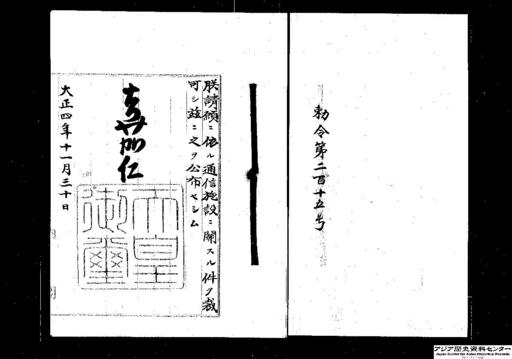 勅令第二百十五号
朕請願ニ依ル通信施設ニ關スル件ヲ裁
可シ茲ニ之ヲ公布セシム
嘉仁
天皇
御璽
大正四年十一月三十日
アジア歴史資料センター
Japan Center for Asian Historical Records